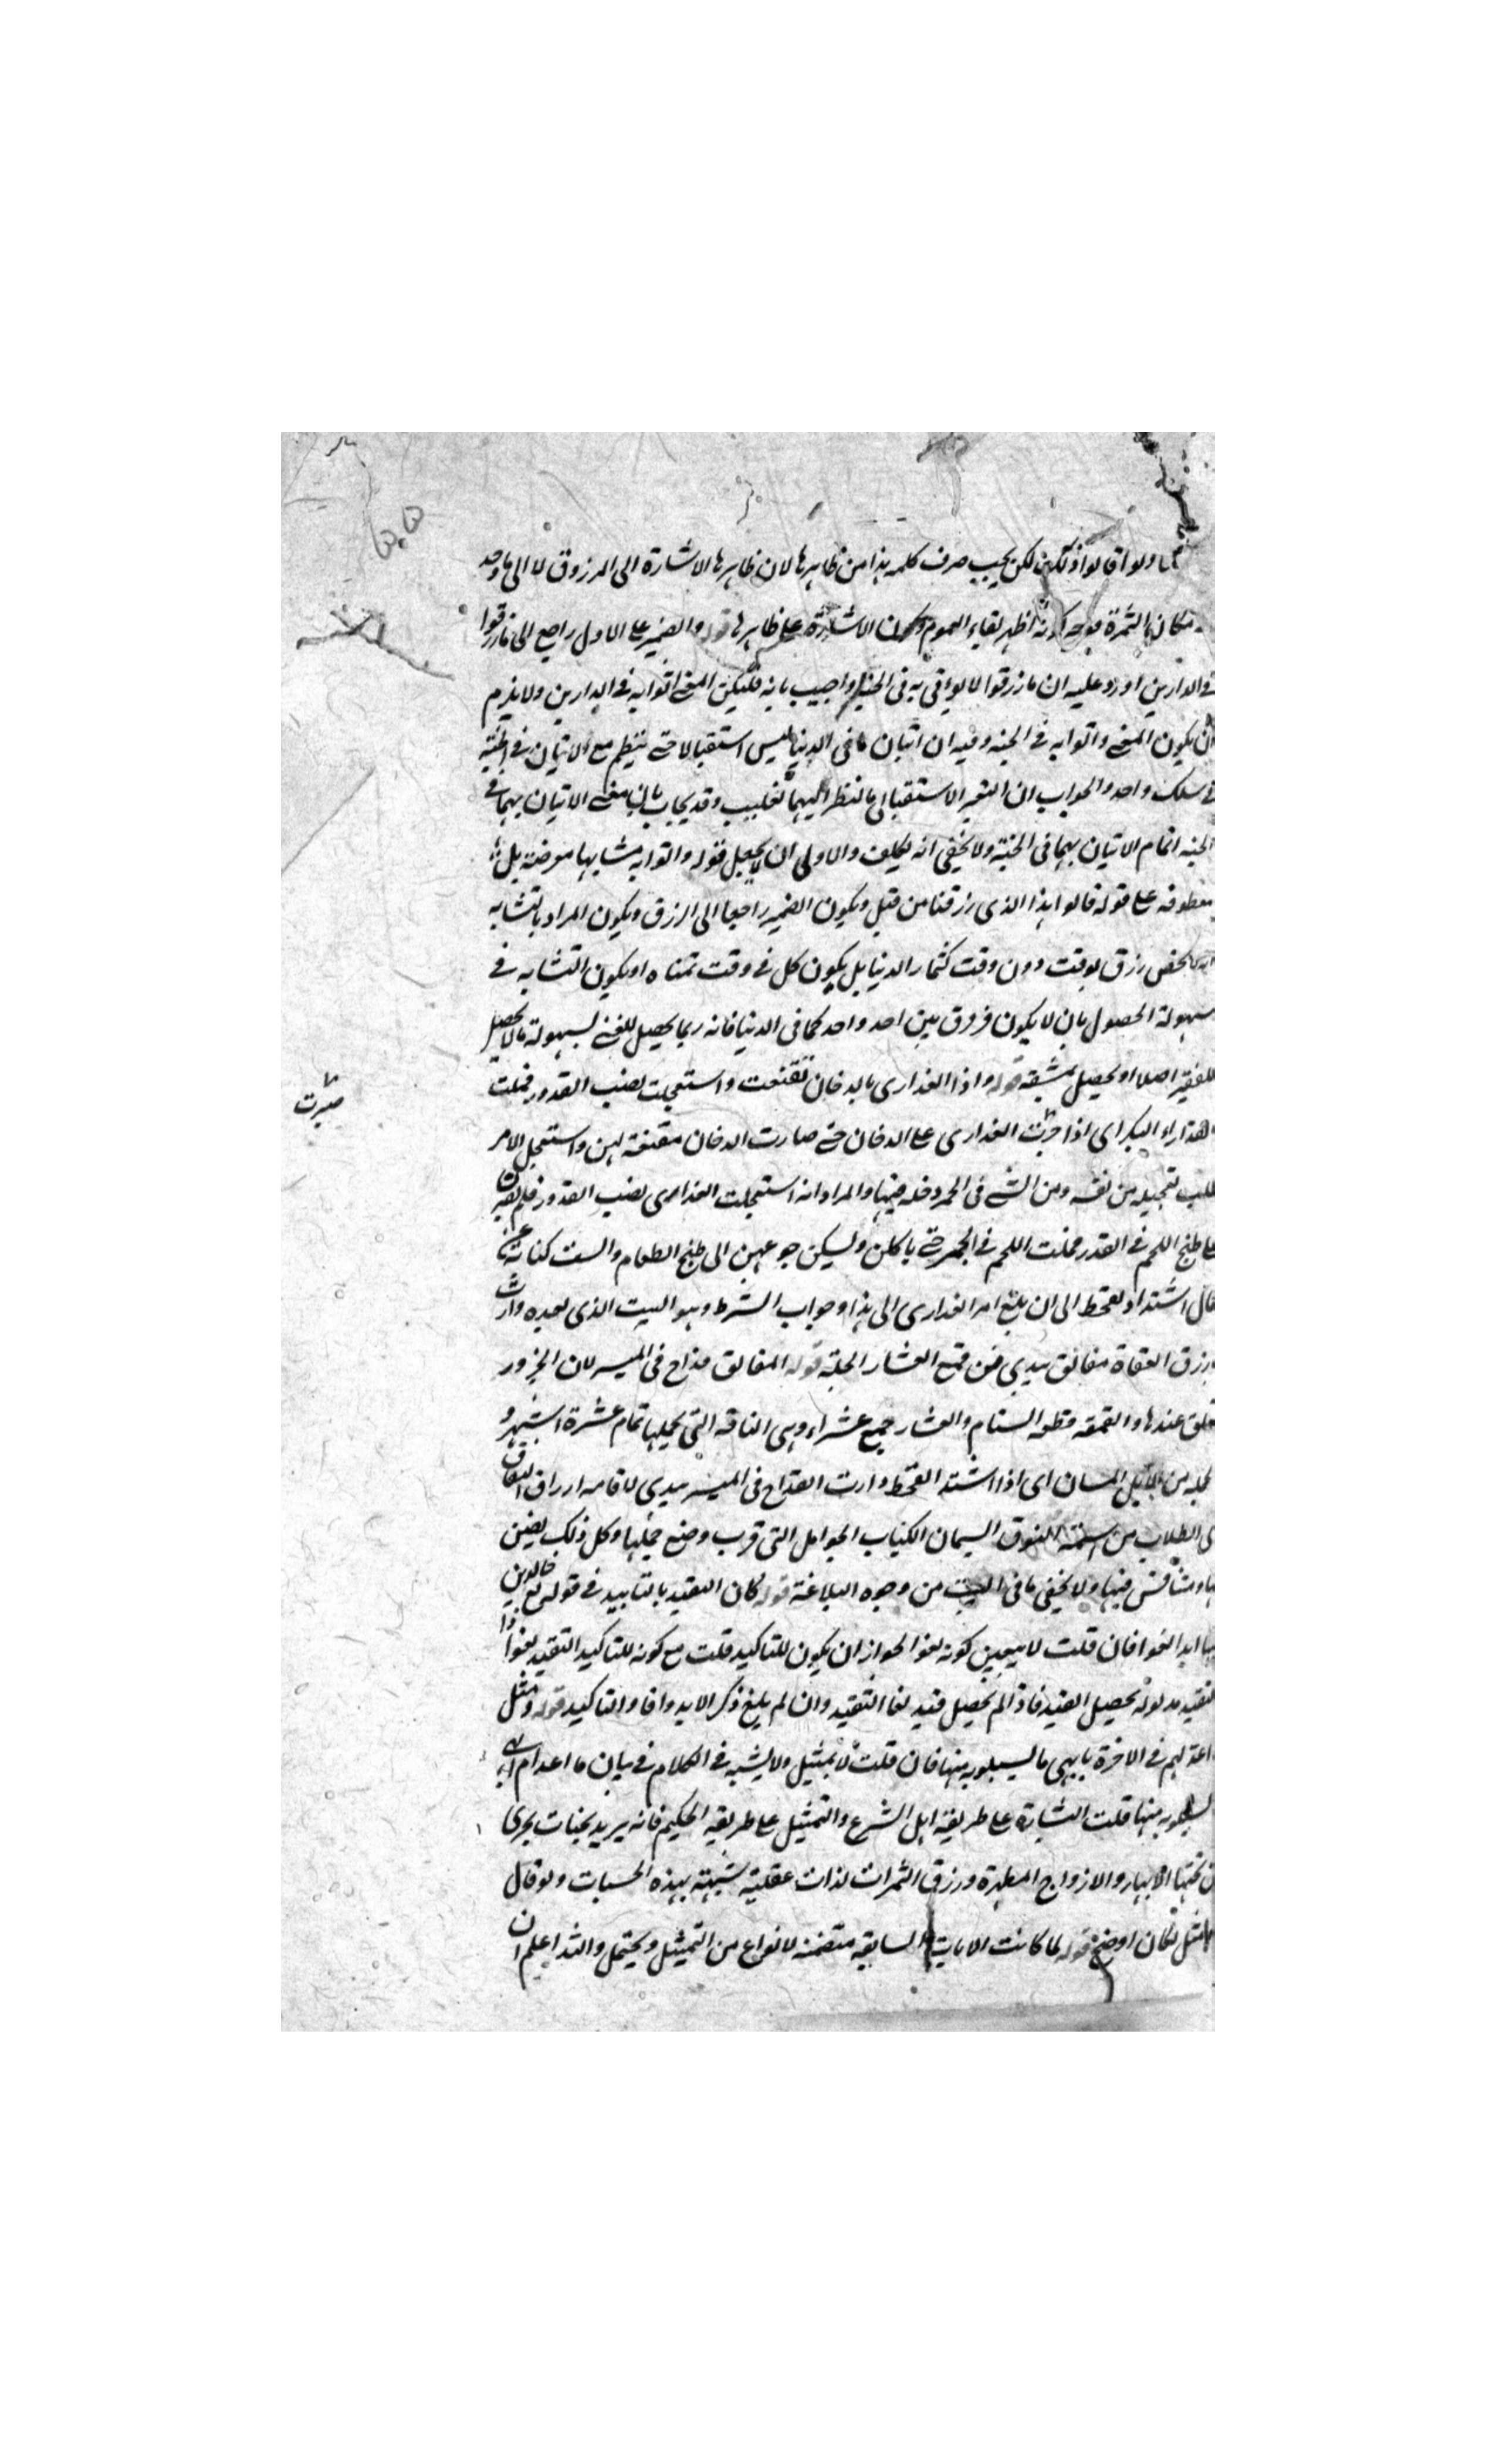 ولو اقالوا ذلك لكن يجب صرف كلمه هذا من ظاهرها لان ظاهرها الاشارة الى المرزوق لا الى ما وجد
مكان الثمرة اظهر لبقاء العموم وكون الاشارة على ظاهرها قوله والضمير على الاول راجع الى ما رزقوا
فى الدارين اورد عليه ان ما رزقوا لا يوافى به فى الجنة واجيب بانه فليكن المعنى اتوا به فى الدارين ولا يلزم
ان يكون المعنى واتوا به فى الجنه وفيه ان اتيان ما فى الدنيا ليس استقبالا حتى ينتظم مع الاتيان فى الجنة
فى سلك واحد والجواب ان التعبير الاستقبالى بالنظر اليهما تغليب وقد يجاب بان معنى الاتيان بهما فى
الجنه اتمام الاتيان بهما فى الجنة ولا يخفى انه تكلف والاولى ان لا يجعل قوله واتوا به متشابها معرضة بل
معطوفه على قوله قالوا هذا الذى رزقنا من قبل ويكون الضمير راجعا الى الرزق ويكون المراد بالتشابه
رزق بوقت دون وقت كثمار الدنيا بل يكون كل فى وقت تمناه او يكون التشابه فى
سهولة الحصول بان لا يكون فروق بين احد واحد كما فى الدنيا فانه ربما يحصل للغنى بسهولة ما لا يحصل
للفقير اصلا او يحصل بمشقة قوله واذا العذارى بالدخان تقنعت واستعجلت نصب القدور فملت
العذاراء البكر اى اذا العذارى على الدخان حتى صارت الدخان مقنعة لهن واستعجل الامر
طلب تعجيله من نفسه ومن الشى فى الجمر دخله فيها والمراد انه استعجلت العذارى نصب القدور فلم
على طبخ اللحم فى القدر فملت اللحم فى الجمر حتى ياكلن وليسكن جوعهن الى طبخ الطعام والبيت كناية عن
كمال اشتداد القحط الى ان بلغ امر العذارى الى هذا وجواب الشرط وهو البيت الذى بعده دارت
بارزق العفاة مغالق بيدى من قمع العشار الجلة قوله المغالق قداح فى الميسر لان الجزور
تغلق عندها والقمعه قطعه السنام والعشار جمع عشراء وهى الناقه التى لحملها تمام عشرة اشهر و
الجله من الابل المسان اى اذا اشتد القحط دارت القداح فى الميسر بيدى لاقامه ارزاق
اى الطلاب من اسنمة النوق السمان الكبار الحوامل التى قرب وضع حملها وكل ذلك يضن
بها ويتنافس فيها ولا يخفى ما فى البيت من وجوه البلاغة قوله كان التقييد بالتابيد فى قوله تع خالدين
فيها ابدا لغوا فان قلت لا يتعين كونه لغوا لجواز ان يكون للتاكيد قلت مع كونه للتاكيد التقييد لغوا
التقييد مدلوله تحصيل القيد فاذا لم يحصل قيد لغا التقييد وان لم يلغ ذكر الابد وافاد التاكيد قوله ومثل
ما اعد لهم فى الاخرة بابهى ما يستلذ به منها فان قلت لا تمثيل ولا تشبيه فى الكلام فى بيان ما اعد لهم
يستلذ به منها قلت البشارة على طريقة اهل الشرع والتمثيل على طريقه الحكيم فانه يريد بجنات تجرى
من تحتها الانهار والازواج المطهرة ورزق الثمرات لذات عقلية شبهة بهذه الحسيات ولو قال
لكان اوضح قوله لما كانت الايات السابقه متضمنه لانواع من التمثيل ويحتمل والله اعلم ان
صيرت